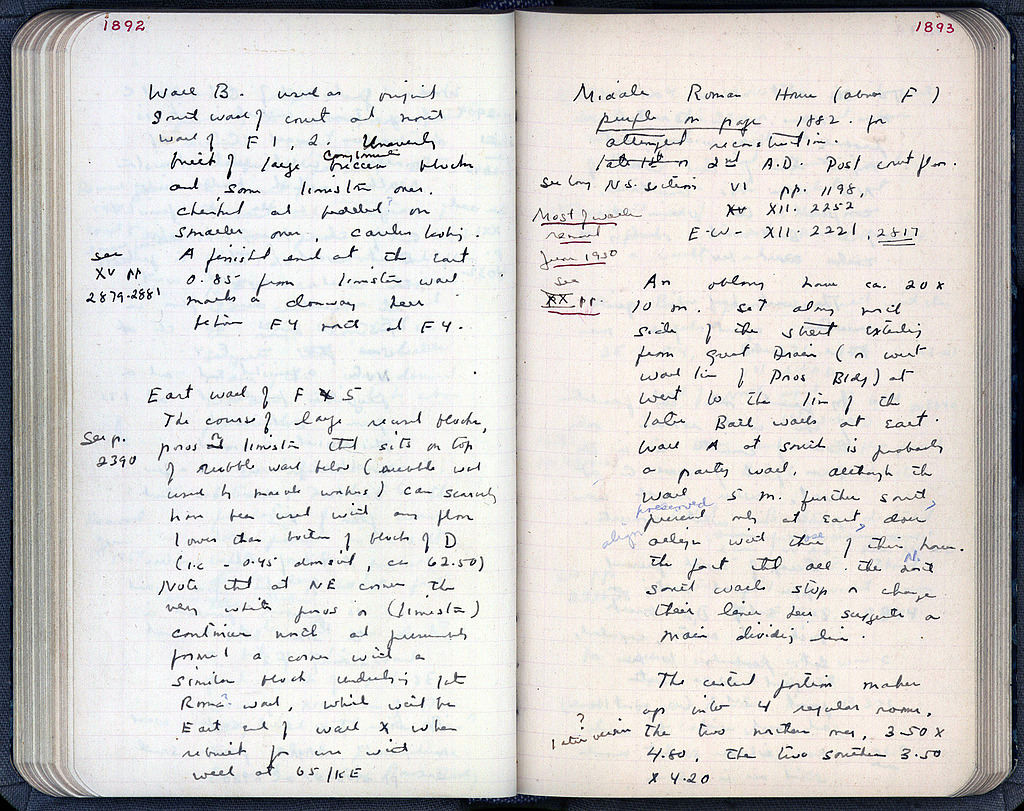 1892
Wall B. used as original
South wall of court at north
wall of F 1, 2. Unevenly
built of large breccia blocks
conglomerate
and some limestone ones.
? on
smaller ones, careless
see
XV pp
2879-2881
A finished end at the East
0.85 from limestone wall
marks a doorway here
before F4 north of F4.
East wall of F X 5
The course of large reused blocks,
See p.
2390
poros limestone that sits on top
of rubble wall below (rubble wall
used by marble workers) can scarcely
have been used with any floor
lower than bottom of blocks of D
(i.e. - 0.45 , ca 62.50)
Note that at NE corner the
very white poros or (limestone)
continues north and presumably
formed a corner with a
similar block underlying late
Roman wall, which will be
East end of wall X when
rebuilt for use with
well at 65/KE
1893
Middle Roman House (above F)
purple on page 1882. for
attempted reconstruction.
late 1st or 2nd A.D. Post court floor.
see long N.S. sections VI pp. 1198,
XV XII. 2252
E-W- XII. 2221, 2817
Most of walls
removed
June 1950
see
XX pp.
An oblong house ca. 20 x
10 m. set along north
side of the street extending
from Great Drain (or west
wall line of Poros Bldg) at
west to the line of the
later Bath walls at East.
Wall A at south is probably
a party wall, although the
wall 5 m. further south,
preserved
preserved only at East, does
align
align with those of this house.
The fact that all the
N.
south walls stop or change
their line here suggests a
main dividing line.
The central portion makes
up into 4 regular rooms,
?
later version
the two northern ones, 3.50 x
4.80, the two southern 3.50
x 4.20